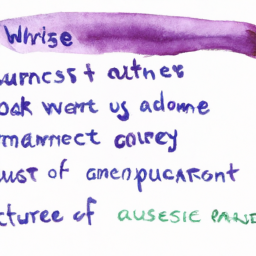 Whrise
urncst autnes
ook went us adome
mannect corey
ust of amenpucaront
cturee of ausesie